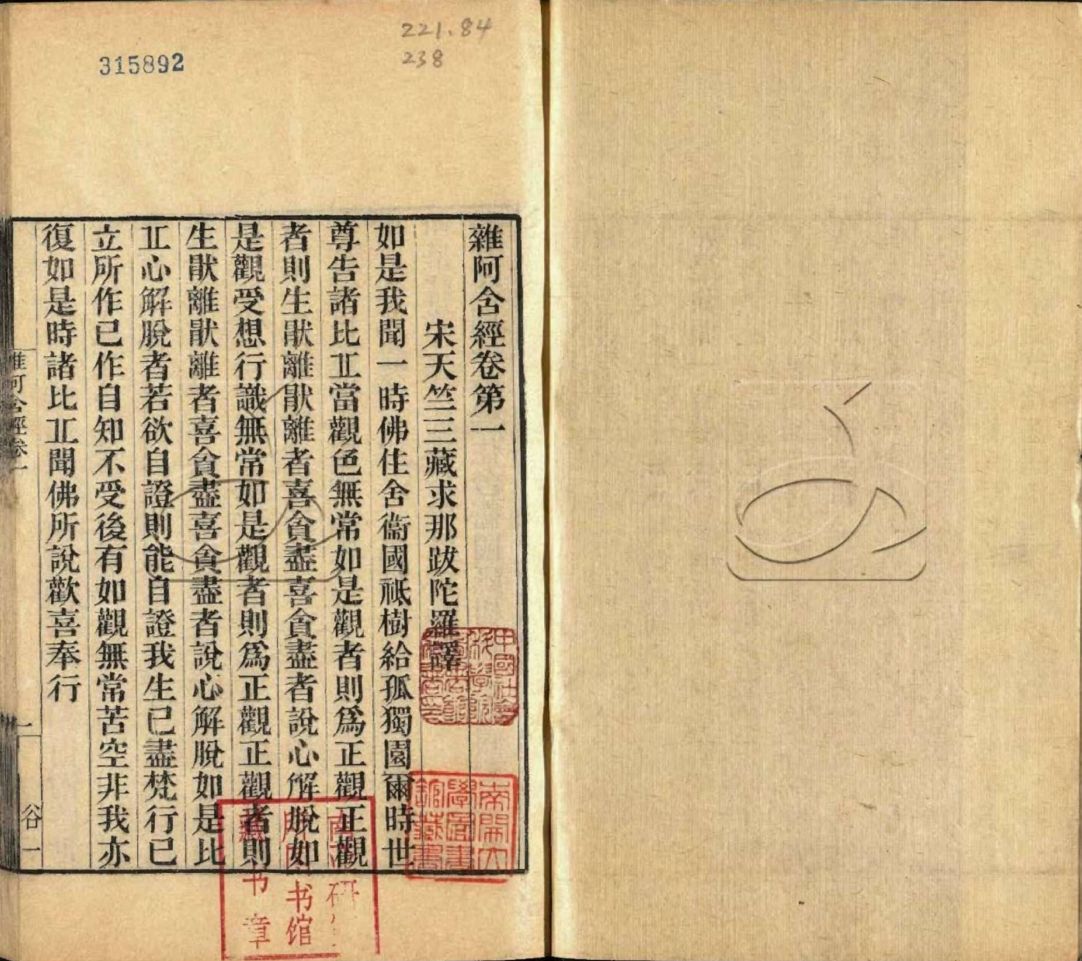 221.84
238
315892
雜阿含經卷第一
宋天竺三藏求那跋陀羅譯
如是我聞一時佛住舍衞國祇樹給孤獨園爾時世
尊告諸比丘當觀色無常如是觀者則爲正觀正觀
者則生猒離猒離者喜貪盡喜貪盡者說心解脫如
是觀受想行識無常如是觀者則爲正觀正觀者則
生猒離猒離者喜貪盡喜貪盡者說心解脫如是比
丘心解脫者若欲自證則能自證我生已盡梵行已
立所作已作自知不受後有如觀無常苦空非我亦
復如是時諸比丘聞佛所說歡喜奉行
雜阿含經卷一
一
谷一
南開大
學圖書
館藏書
书馆
藏书章